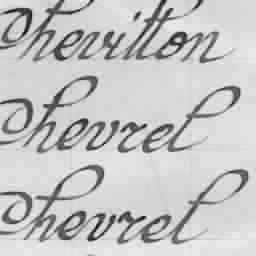 Chevilton
Chevrel
Chevrel